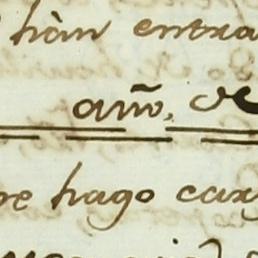 hàn entra
año, de
hago carg